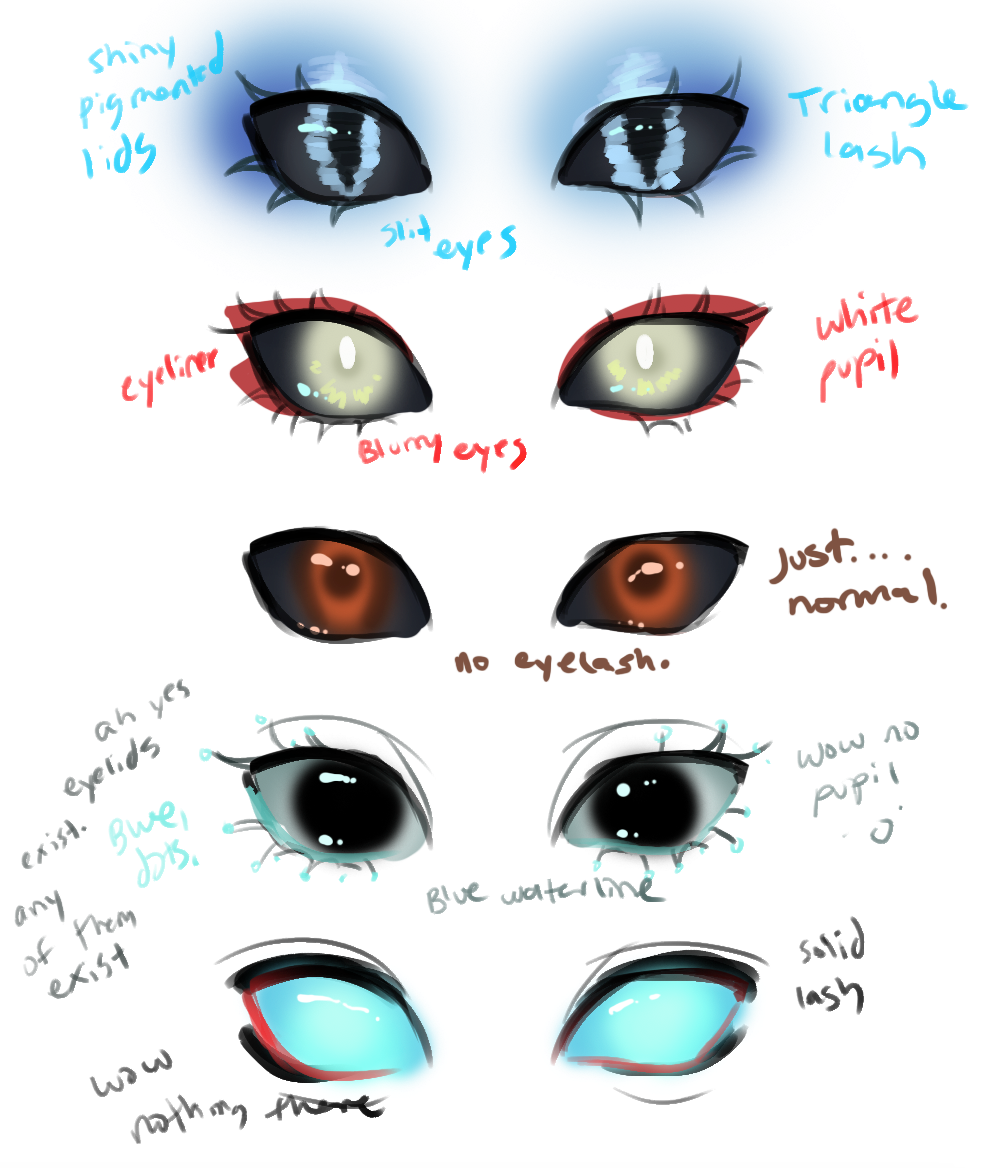 shiny
pigmented
lids
Triangle
lash
slit eyes
eyeliner
white
pupil
Blurry eyes
Just....
normal.
no eyelash.
ah yes
eyelids
exist.
any
of them
exist
Blue,
dots.
wow no
pupil
:O
Blue waterline
solid
lash
wow
nothing there